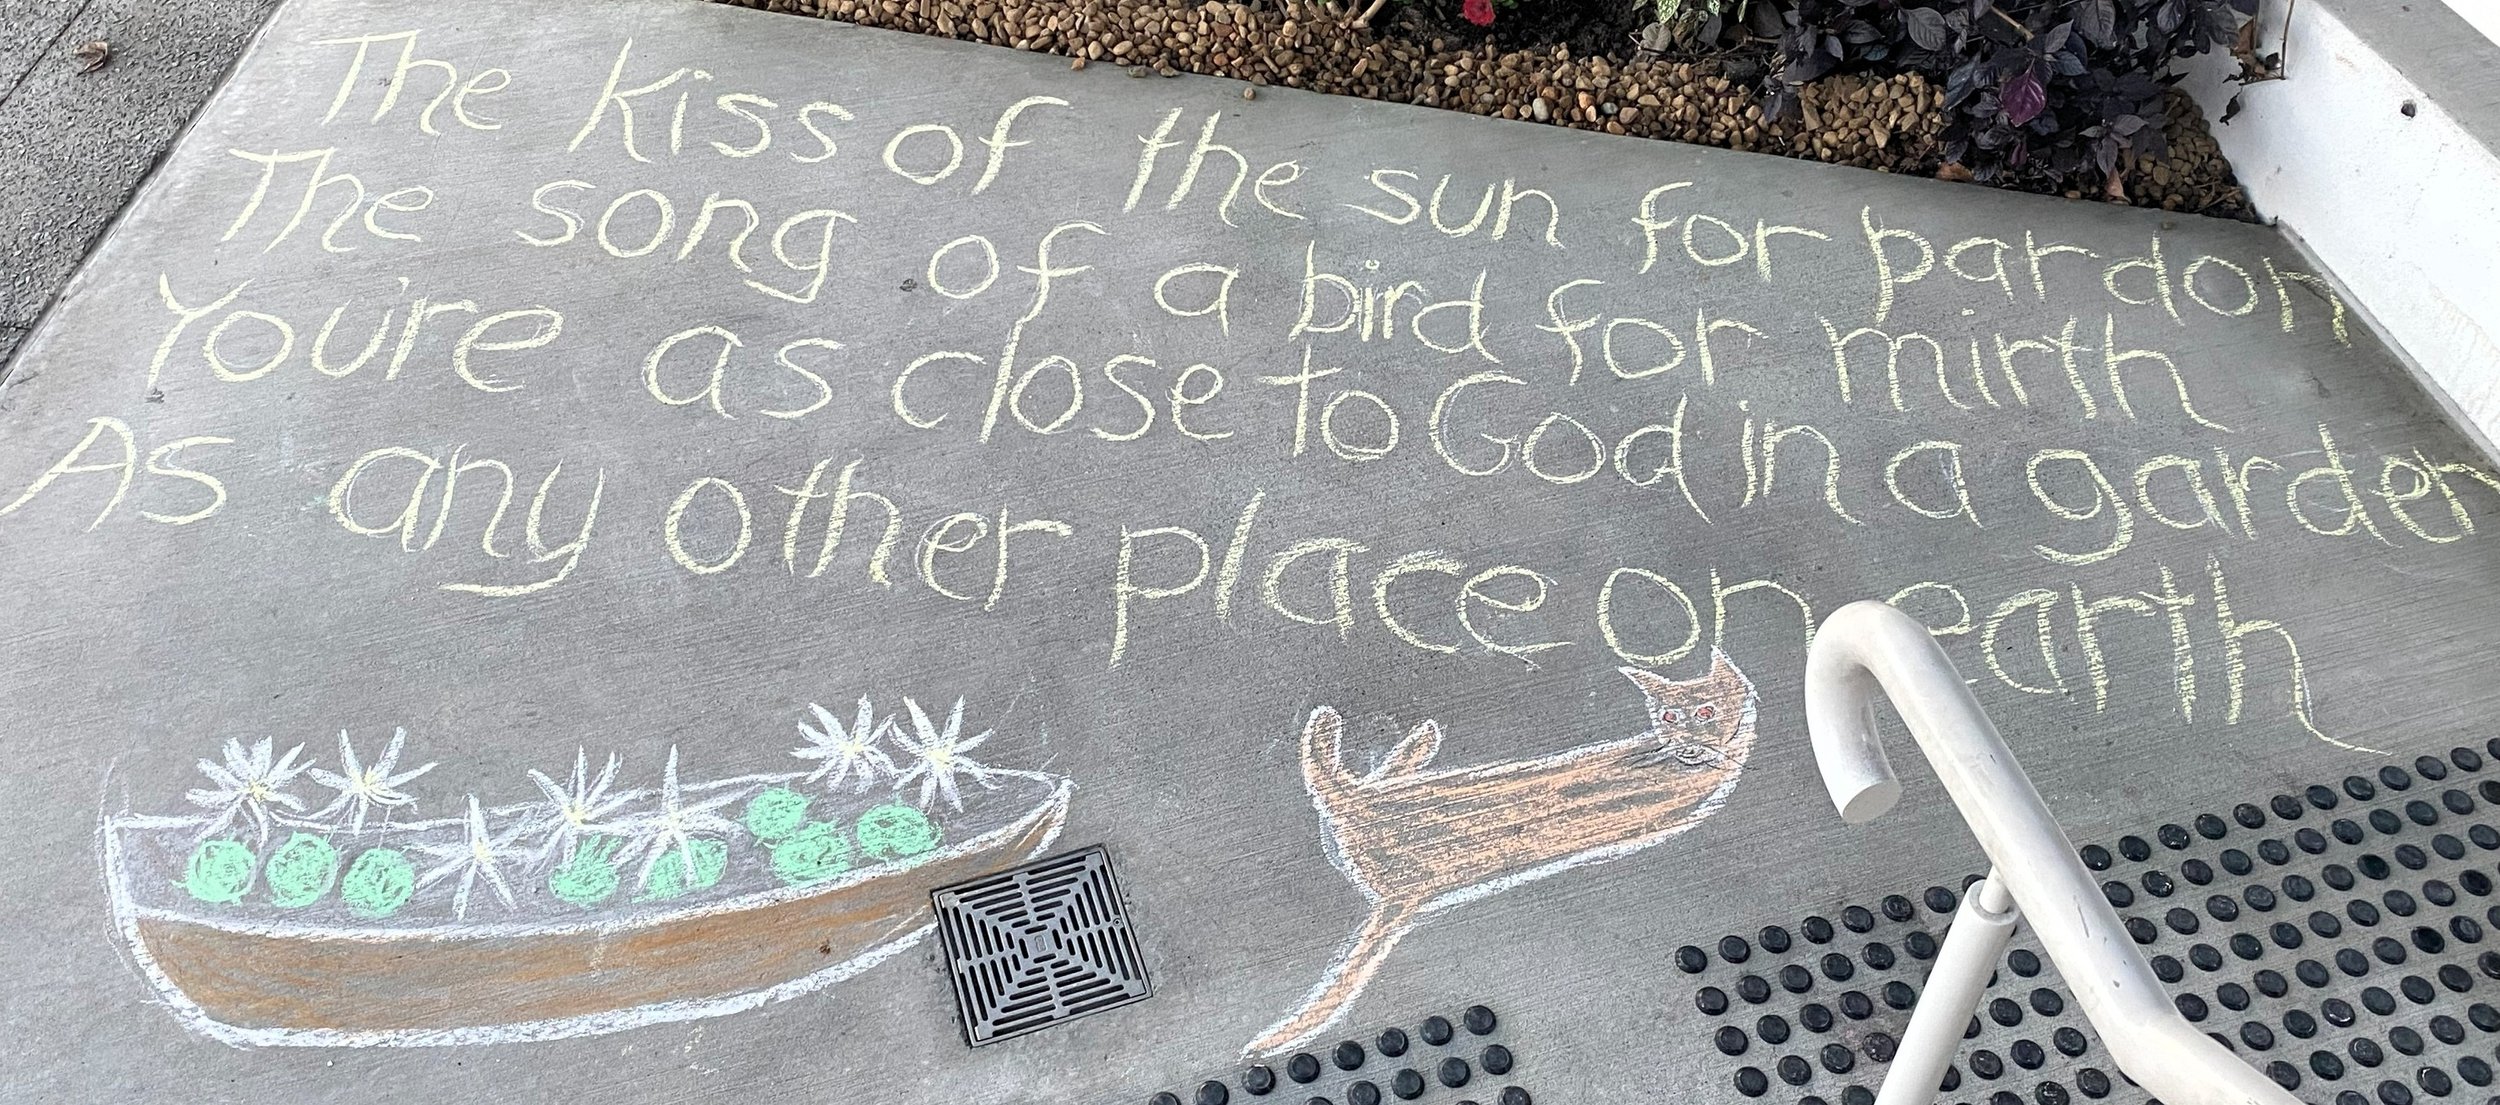 The kiss of the sun for pardon
The song of a bird for mirth
You're as close to God in a garden
As any other place on earth